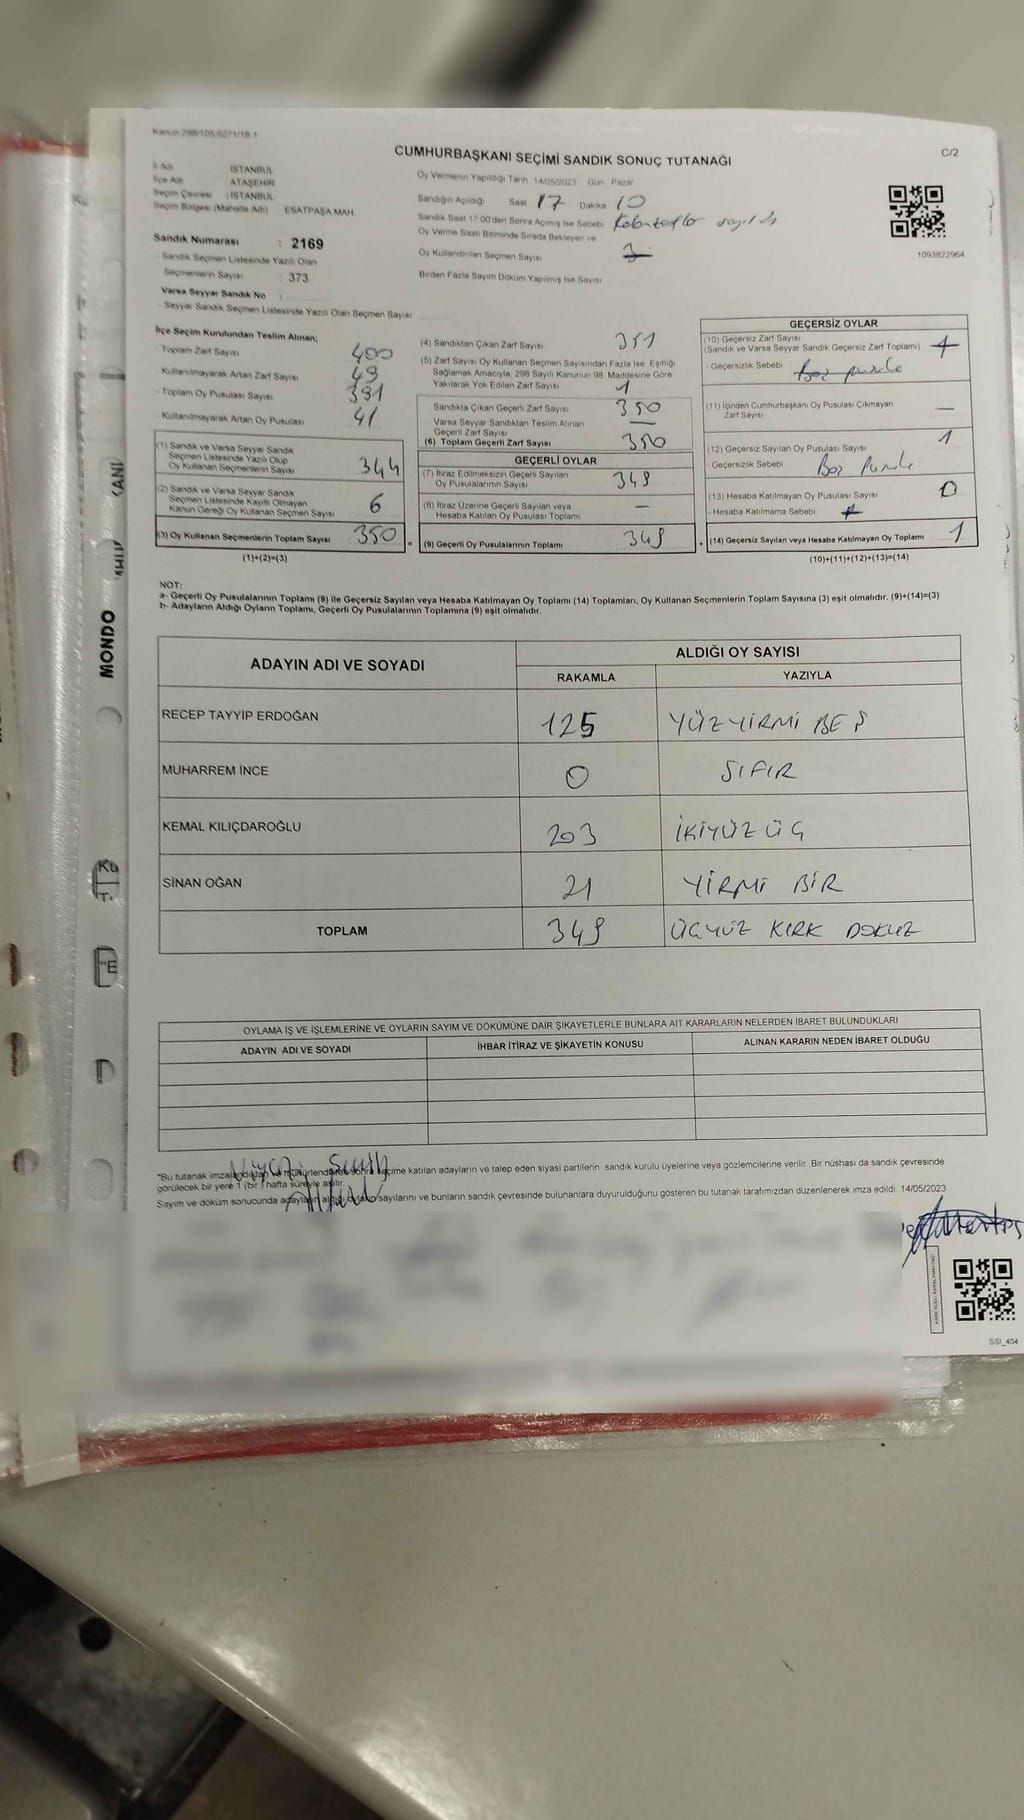 Kanun 298/105,6271/18-1
C/2
CUMHURBAŞKANI SEÇİMİ SANDIK SONUÇ TUTANAĞI
İl Adı İSTANBUL
İlçe Adı ATAŞEHİR
Seçim Çevresi : İSTANBUL
Seçim Bölgesi (Mahalle Adı) ESATPAŞA MAH
Sandık Numarası : 2169
Sandık Seçmen Listesinde Yazılı Olan
Seçmenlerin Sayısı : 373
Varsa Seyyar Sandık No
Seyyar Sandık Seçmen Listesinde Yazılı Olan Seçmen Sayısı
Oy Vermenin Yapıldığı Tarih 14/05/2023 Gün Pazar
Sandığın Açıldığı Saat 17 Dakika 10
Sandık Saat 17:00'den Sonra Açılmış İse Sebebi
Oy Verme Saati Bitiminde Sırada Bekleyen ve
Oy Kullandırılan Seçmen Sayısı
Birden Fazla Sayım Döküm Yapılmış İse Sayısı
1093822964
İlçe Seçim Kurulundan Teslim Alınan;
Toplam Zarf Sayısı 400
Kullanılmayarak Artan Zarf Sayısı 49
Toplam Oy Pusulası Sayısı 391
Kullanılmayarak Artan Oy Pusulası 41
(1) Sandık ve Varsa Seyyar Sandık
Seçmen Listesinde Yazılı Olup
Oy Kullanan Seçmenlerin Sayısı 344
(2) Sandık ve Varsa Seyyar Sandık
Seçmen Listesinde Kayıtlı Olmayan
Kanun Gereği Oy Kullanan Seçmen Sayısı 6
(3) Oy Kullanan Seçmenlerin Toplam Sayısı 350
(1)+(2)=(3)
(4) Sandıktan Çıkan Zarf Sayısı 351
(5) Zarf Sayısı Oy Kullanan Seçmen Sayısından Fazla İse, Eşitliği
Sağlamak Amacıyla, 298 Sayılı Kanunun 98. Maddesine Göre
Yakılarak Yok Edilen Zarf Sayısı 1
Sandıkta Çıkan Geçerli Zarf Sayısı 350
Varsa Seyyar Sandıktan Teslim Alınan
Geçerli Zarf Sayısı —
(6) Toplam Geçerli Zarf Sayısı 350
GEÇERLİ OYLAR
(7) İtiraz Edilmeksizin Geçerli Sayılan
Oy Pusulalarının Sayısı 349
(8) İtiraz Üzerine Geçerli Sayılan veya
Hesaba Katılan Oy Pusulası Toplamı —
(9) Geçerli Oy Pusulalarının Toplamı 349
GEÇERSİZ OYLAR
(10) Geçersiz Zarf Sayısı
(Sandık ve Varsa Seyyar Sandık Geçersiz Zarf Toplamı)
- Geçersizlik Sebebi Boş pusula
(11) İçinden Cumhurbaşkanı Oy Pusulası Çıkmayan
Zarf Sayısı —
(12) Geçersiz Sayılan Oy Pusulası Sayısı 1
- Geçersizlik Sebebi Boş Pusula
(13) Hesaba Katılmayan Oy Pusulası Sayısı 0
- Hesaba Katılmama Sebebi
(14) Geçersiz Sayılan veya Hesaba Katılmayan Oy Toplamı 1
(10)+(11)+(12)+(13)=(14)
NOT:
a- Geçerli Oy Pusulalarının Toplamı (9) ile Geçersiz Sayılan veya Hesaba Katılmayan Oy Toplamı (14) Toplamları, Oy Kullanan Seçmenlerin Toplam Sayısına (3) eşit olmalıdır. (9)+(14)=(3)
b- Adayların Aldığı Oyların Toplamı, Geçerli Oy Pusulalarının Toplamına (9) eşit olmalıdır.
ADAYIN ADI VE SOYADI
ALDIĞI OY SAYISI
RAKAMLA YAZIYLA
RECEP TAYYİP ERDOĞAN 125 YÜZYİRMİ BEŞ
MUHARREM İNCE 0 SIFIR
KEMAL KILIÇDAROĞLU 203 İKİYÜZ ÜÇ
SİNAN OĞAN 21 YİRMİ BİR
TOPLAM 349 ÜÇYÜZ KIRK DOKUZ
OYLAMA İŞ VE İŞLEMLERİNE VE OYLARIN SAYIM VE DÖKÜMÜNE DAİR ŞİKAYETLERLE BUNLARA AİT KARARLARIN NELERDEN İBARET BULUNDUKLARI
ADAYIN ADI VE SOYADI İHBAR İTİRAZ VE ŞİKAYETİN KONUSU ALINAN KARARIN NEDEN İBARET OLDUĞU
*Bu tutanak imzalandıktan ve mühürlendikten sonra seçime katılan adayların ve talep eden siyasi partilerin sandık kurulu üyelerine veya gözlemcilerine verilir. Bir nüshası da sandık çevresinde
görülecek bir yere 1 (bir) hafta süreyle asılır.
Sayım ve döküm sonucunda adayların aldığı oy sayılarını ve bunların sandık çevresinde bulunanlara duyurulduğunu gösteren bu tutanak tarafımızdan düzenlenerek imza edildi. 14/05/2023
SSİ_404
MONDO